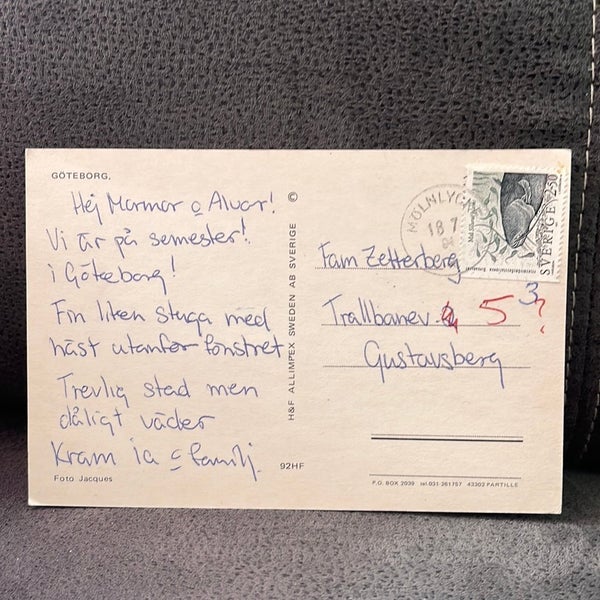 GÖTEBORG.
Hej Mormor o Alvar!
Vi är på semester!
i Göteborg!
Fin liten stuga med
häst utanför fönstret
Trevlig stad men
dåligt väder
Kram ia o familj.
Foto Jacques
92HF
H&F ALLIMPEX SWEDEN AB SVERIGE ©
MÖLNLYCK
18 7
SVERIGE 250
Fam Zetterberg
Trallbanev. 5 3?
Gustavsberg
P.O. BOX 2039 tel.031-261757 43302 PARTILLE